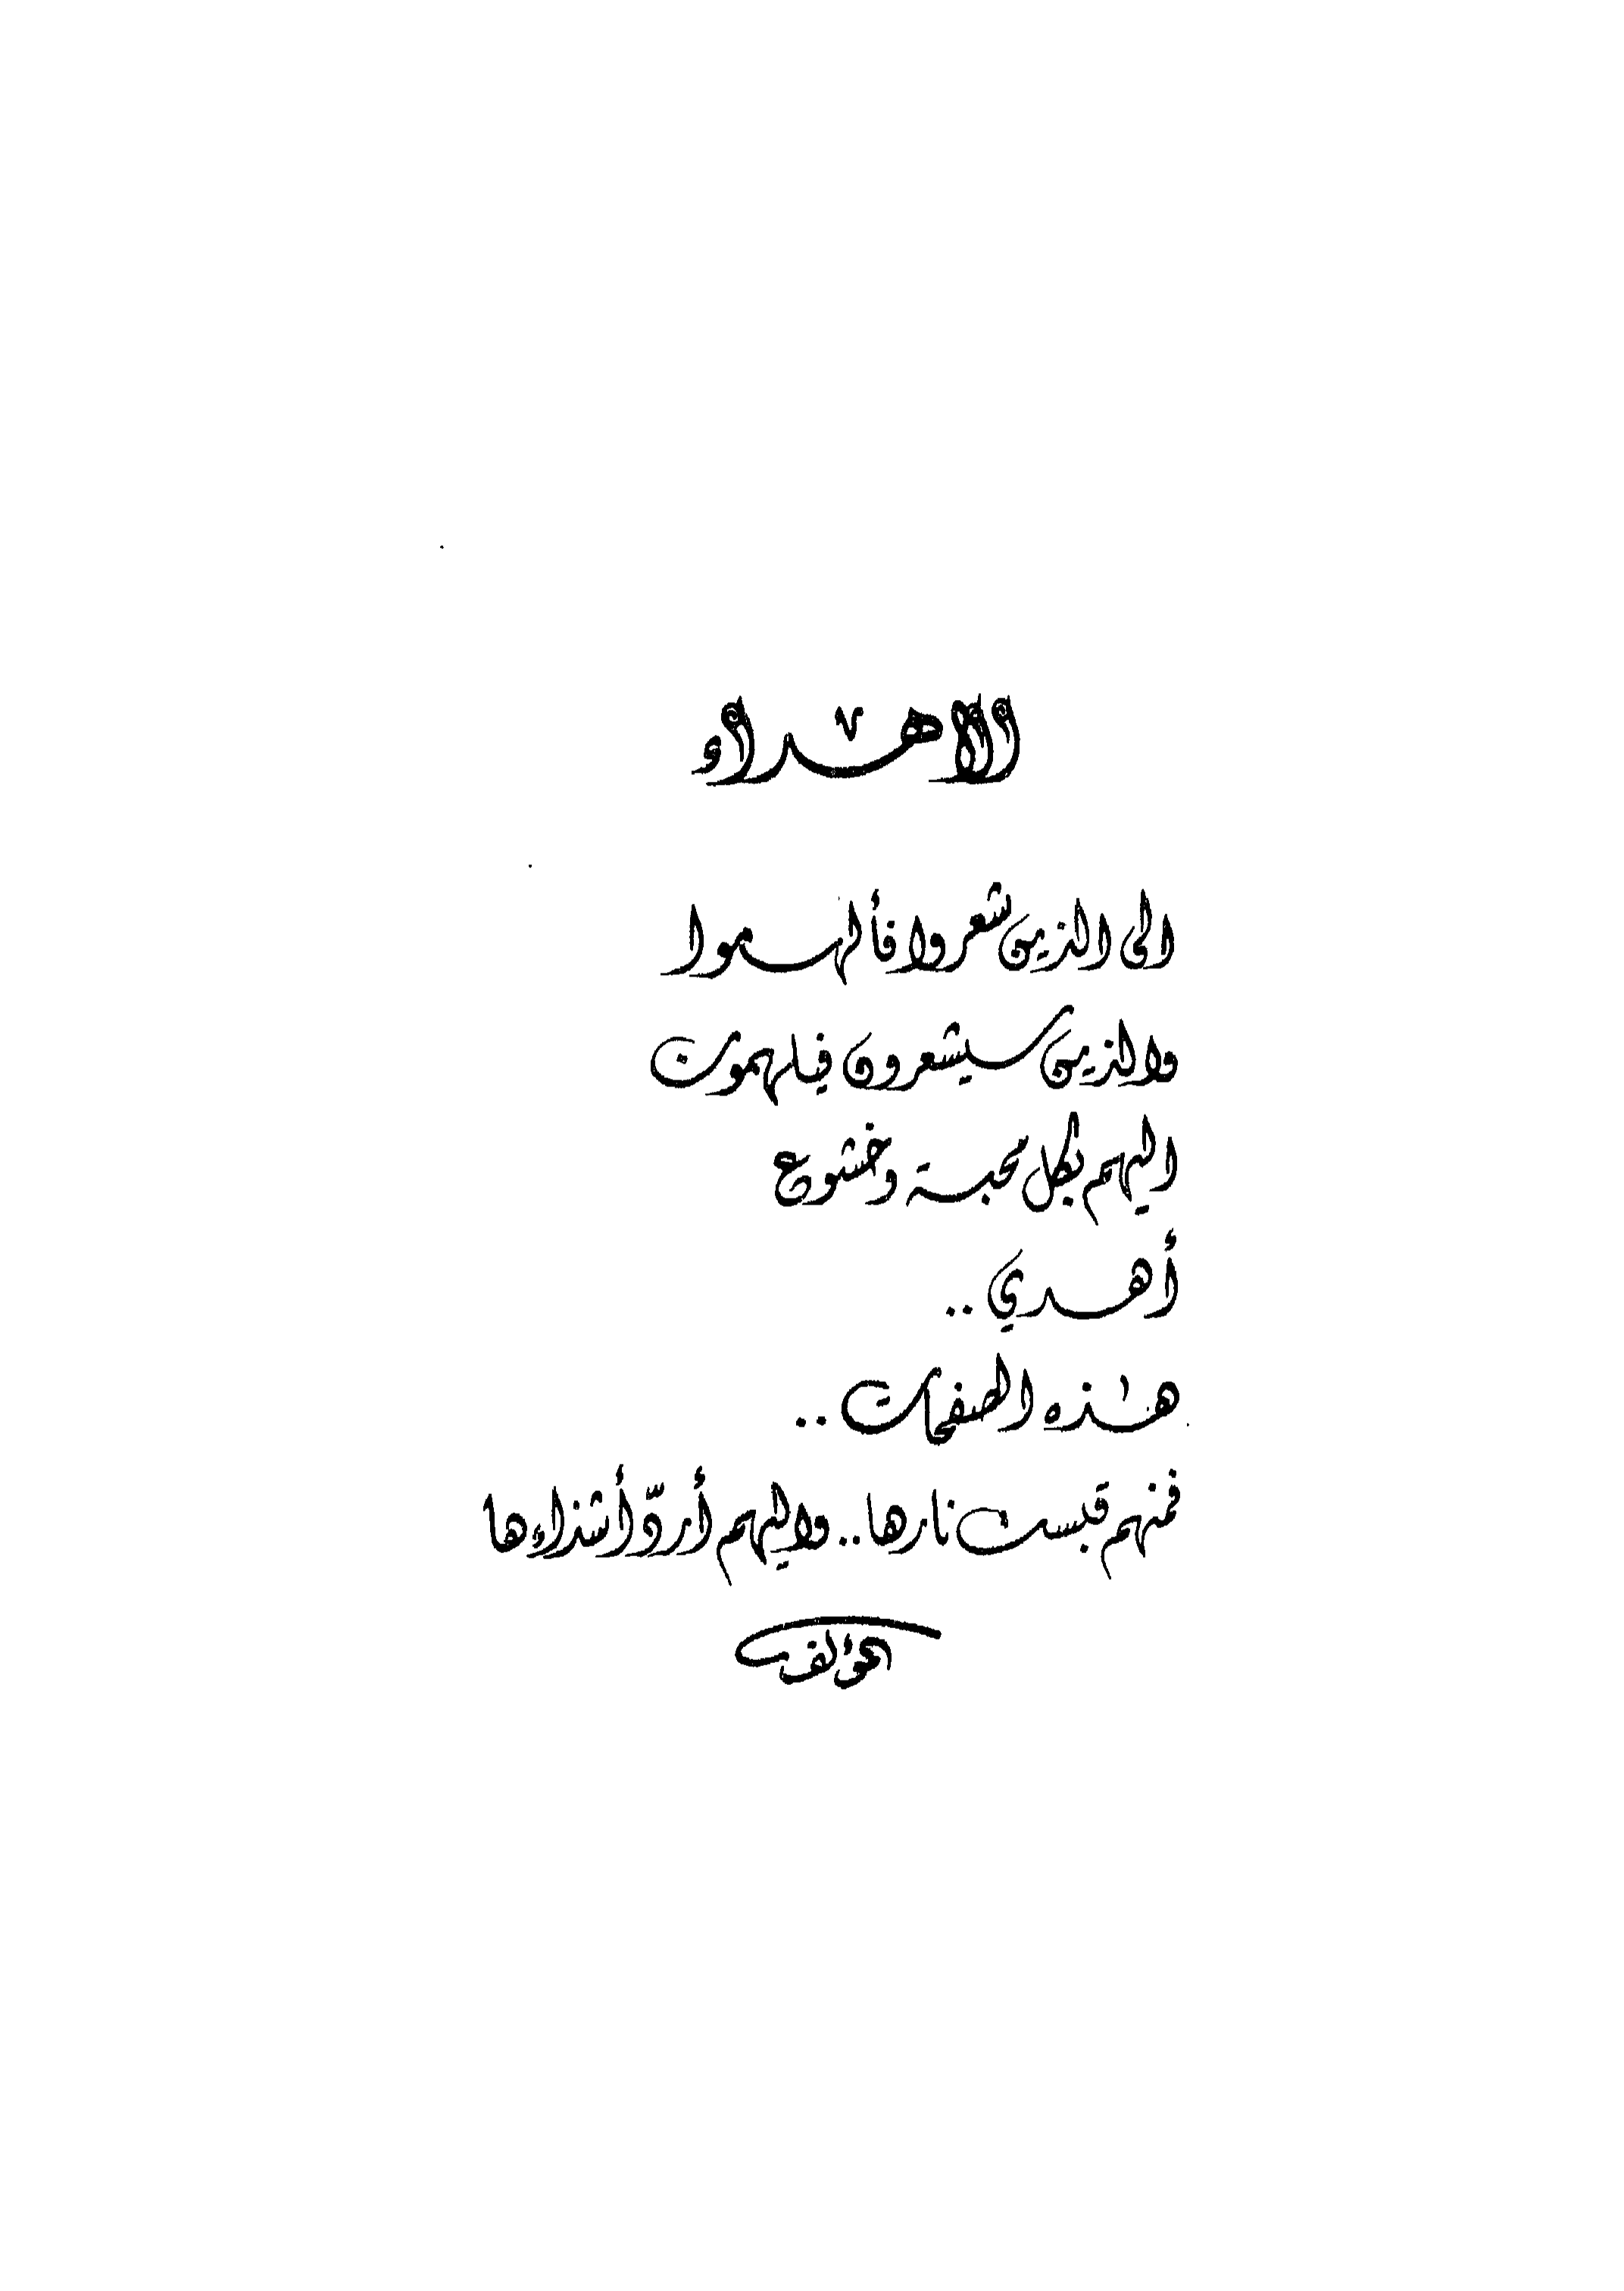 الاهداء
الى الذين شعروا فألهموا
والذين سيشعرون فيلهمون
اليهم بكل محبة وخشوع
أهدي ..
هذه الصفحات ..
فمنهم قبست نارها .. واليهم أردّ أشذاءها
المؤلف